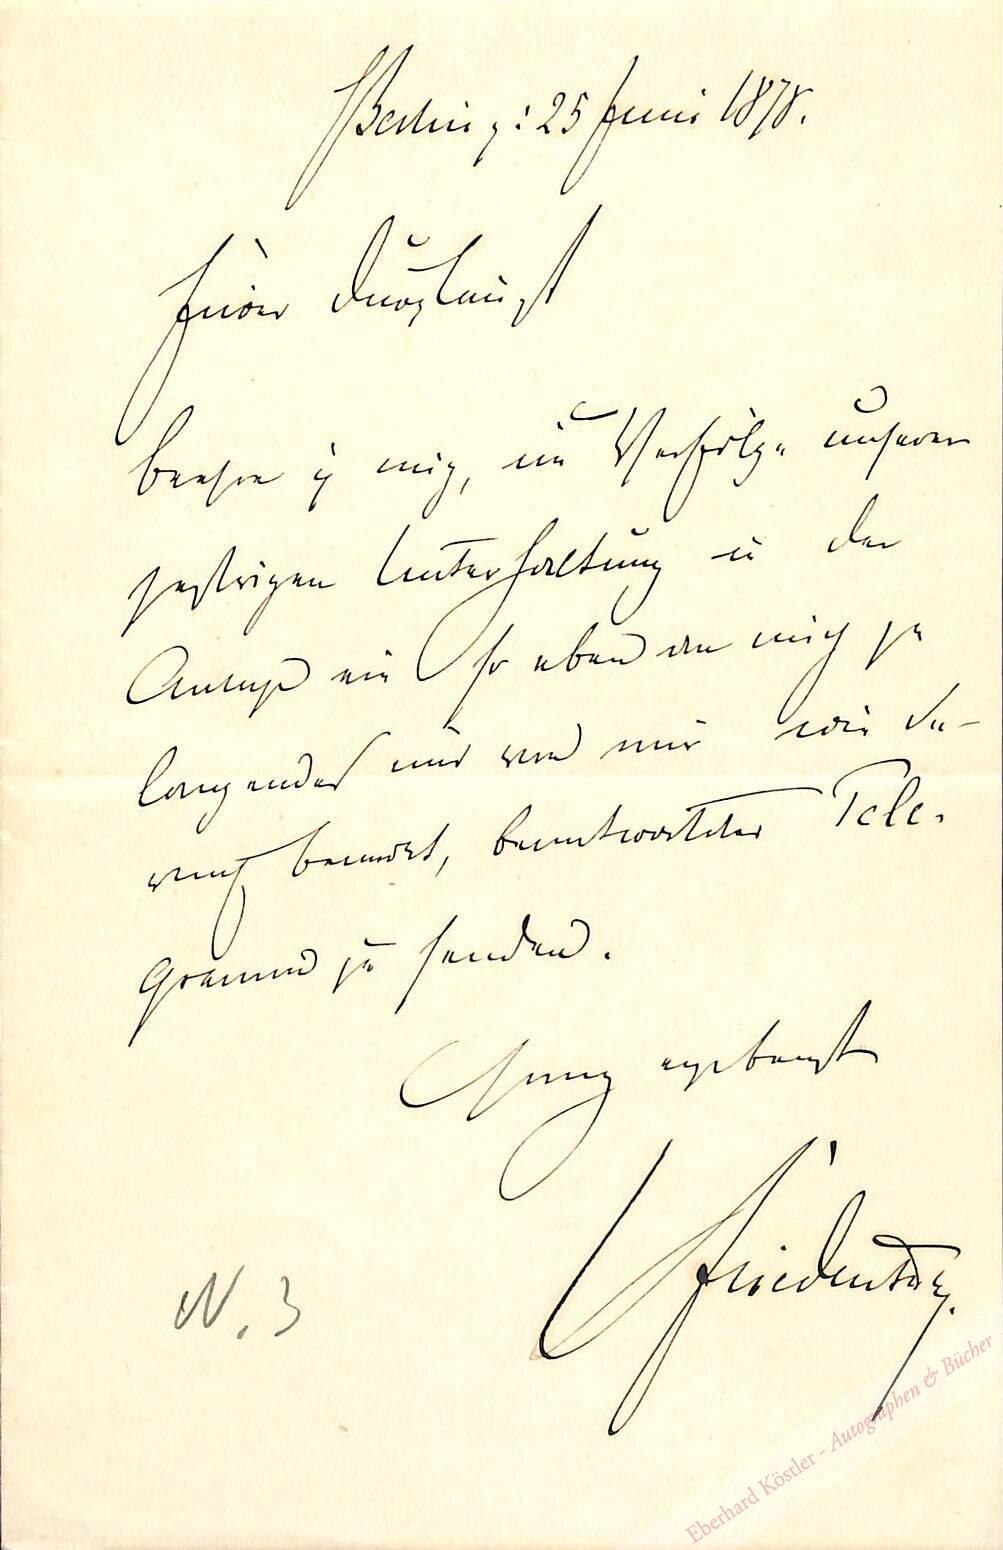 Berlin, 25 Juni 1878.
Euer Durchlaucht
beehre ich mich, im Verfolge unserer
gestrigen Unterhaltung u der
Anlage ein so eben an mich ge
langendes und von mir wie da-
nach bemerkt, beantwortetes Tele-
gramm zu senden.
Ganz ergebenst
Friedenthal.
N. 3
Eberhard Köstler - Autographen & Bücher